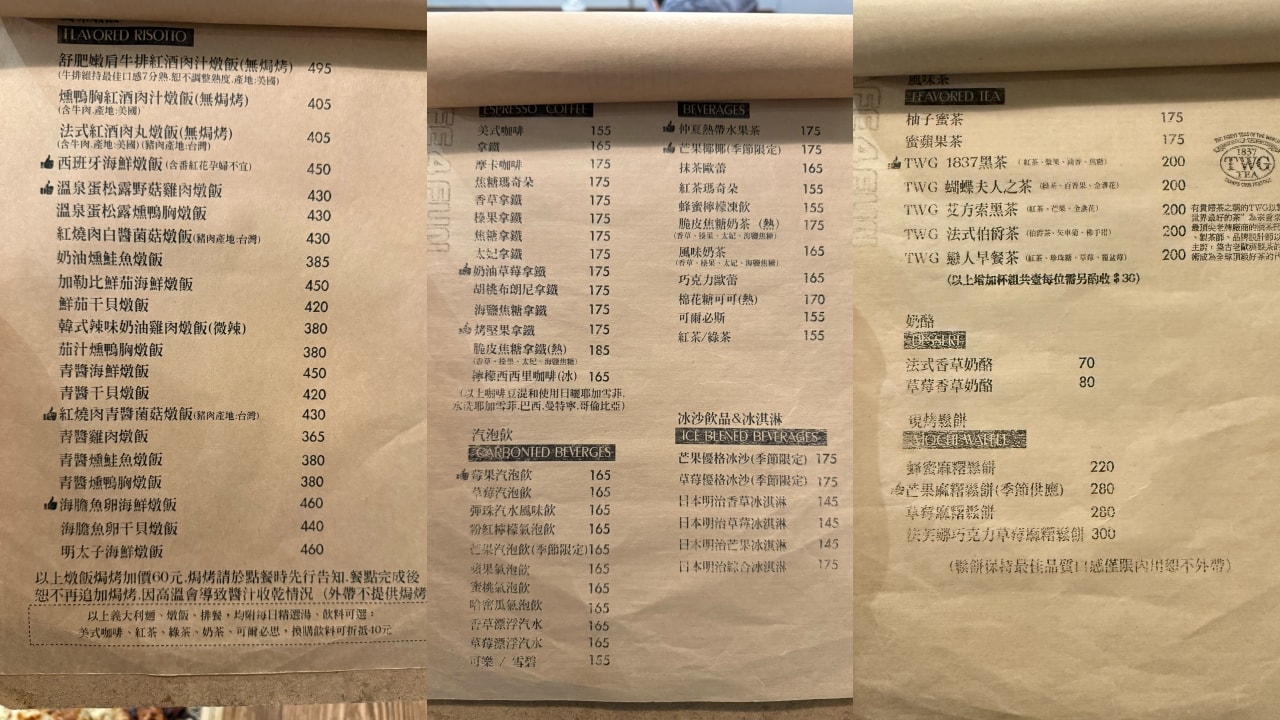 FLAVORED RISOTTO
舒肥嫩肩牛排紅酒肉汁燉飯(無焗烤) 495
(牛排維持最佳口感7分熟.恕不調整熟度.產地:美國)
燻鴨胸紅酒肉汁燉飯(無焗烤) 405
(含牛肉.產地:美國)
法式紅酒肉丸燉飯(無焗烤) 405
(含牛肉.產地:美國)(豬肉產地:台灣)
西班牙海鮮燉飯(含番紅花孕婦不宜) 450
溫泉蛋松露野菇雞肉燉飯 430
溫泉蛋松露燻鴨胸燉飯 430
紅燒肉白醬菌菇燉飯(豬肉產地:台灣) 430
奶油燻鮭魚燉飯 385
加勒比鮮茄海鮮燉飯 450
鮮茄干貝燉飯 420
韓式辣味奶油雞肉燉飯(微辣) 380
茄汁燻鴨胸燉飯 380
青醬海鮮燉飯 450
青醬干貝燉飯 420
紅燒肉青醬菌菇燉飯(豬肉產地:台灣) 430
青醬雞肉燉飯 365
青醬燻鮭魚燉飯 380
青醬燻鴨胸燉飯 380
海膽魚卵海鮮燉飯 460
海膽魚卵干貝燉飯 440
明太子海鮮燉飯 460
以上燉飯焗烤加價60元.焗烤請於點餐時先行告知.餐點完成後
恕不再追加焗烤.因高溫會導致醬汁收乾情況（外帶不提供焗烤
以上義大利麵、燉飯、排餐，均附每日精選湯、飲料可選：
美式咖啡、紅茶、綠茶、奶茶、可爾必思，換購飲料可折抵40元
ESPRESSO COFFEE
美式咖啡 155
拿鐵 165
摩卡咖啡 175
焦糖瑪奇朵 175
香草拿鐵 175
榛果拿鐵 175
焦糖拿鐵 175
太妃拿鐵 175
奶油草莓拿鐵 175
胡桃布朗尼拿鐵 175
海鹽焦糖拿鐵 175
烤堅果拿鐵 175
脆皮焦糖拿鐵(熱) 185
(香草、榛果、太妃、海鹽焦糖)
檸檬西西里咖啡(冰) 165
(以上咖啡豆混和使用日曬耶加雪菲.
水洗耶加雪菲.巴西.曼特寧.哥倫比亞)
汽泡飲
CARBONTED BEVERGES
莓果汽泡飲 165
草莓汽泡飲 165
彈珠汽水風味飲 165
粉紅檸檬氣泡飲 165
芒果汽泡飲(季節限定)165
蘋果氣泡飲 165
蜜桃氣泡飲 165
哈密瓜氣泡飲 165
香草漂浮汽水 165
草莓漂浮汽水 165
可樂 / 雪碧 155
BEVERAGES
仲夏熱帶水果茶 175
芒果椰椰(季節限定) 175
抹茶歐蕾 165
紅茶瑪奇朵 155
蜂蜜檸檬凍飲 155
脆皮焦糖奶茶（熱） 175
(香草、榛果、太妃、海鹽焦糖)
風味奶茶 165
(香草、榛果、太妃、海鹽焦糖)
巧克力歐蕾 165
棉花糖可可(熱) 170
可爾必斯 155
紅茶/綠茶 155
冰沙飲品&冰淇淋
ICE BLENED BEVERAGES
芒果優格冰沙(季節限定) 175
草莓優格冰沙(季節限定) 175
日本明治香草冰淇淋 145
日本明治草莓冰淇淋 145
日本明治芒果冰淇淋 145
日本明治綜合冰淇淋 175
風味茶
FLAVORED TEA
柚子蜜茶 175
蜜蘋果茶 175
TWG 1837黑茶 200
TWG 蝴蝶夫人之茶（綠茶、百香果、金盞花） 200
TWG 艾方索黑茶（紅茶、芒果、金盞花） 200
TWG 法式伯爵茶（伯爵茶、矢車菊、佛手柑） 200
TWG 戀人早餐茶 200
(以上增加杯組共壺每位需另酌收＄30)
1837
TWG
TEA
奶酪
DESSERT
法式香草奶酪 70
草莓香草奶酪 80
現烤鬆餅
MOCHI WAFFLE
蜂蜜麻糬鬆餅 220
芒果麻糬鬆餅(季節供應) 280
草莓麻糬鬆餅 280
法芙娜巧克力草莓麻糬鬆餅 300
（鬆餅保持最佳品質口感僅限內用恕不外帶）